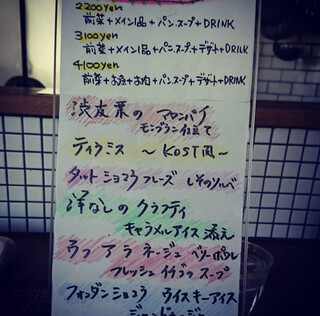 2200yen
前菜+メイン1品+パン.スープ+DRINK
3100yen
前菜+メイン1品+パン.スープ+デザート+DRINK
4100yen
前菜+お魚+お肉+パン.スープ+デザート+DRINK
渋皮栗の マロンパイ
モンブラン仕立て
ティラミス 〜KOST風〜
タルト ショコラ フレーズ しそのソルベ
洋なしの クラフティ
キャラメルアイス 添え
ウフ ア ラ ネージュ
フレッシュ イチゴの スープ
フォンダンショコラ ウイスキーアイス